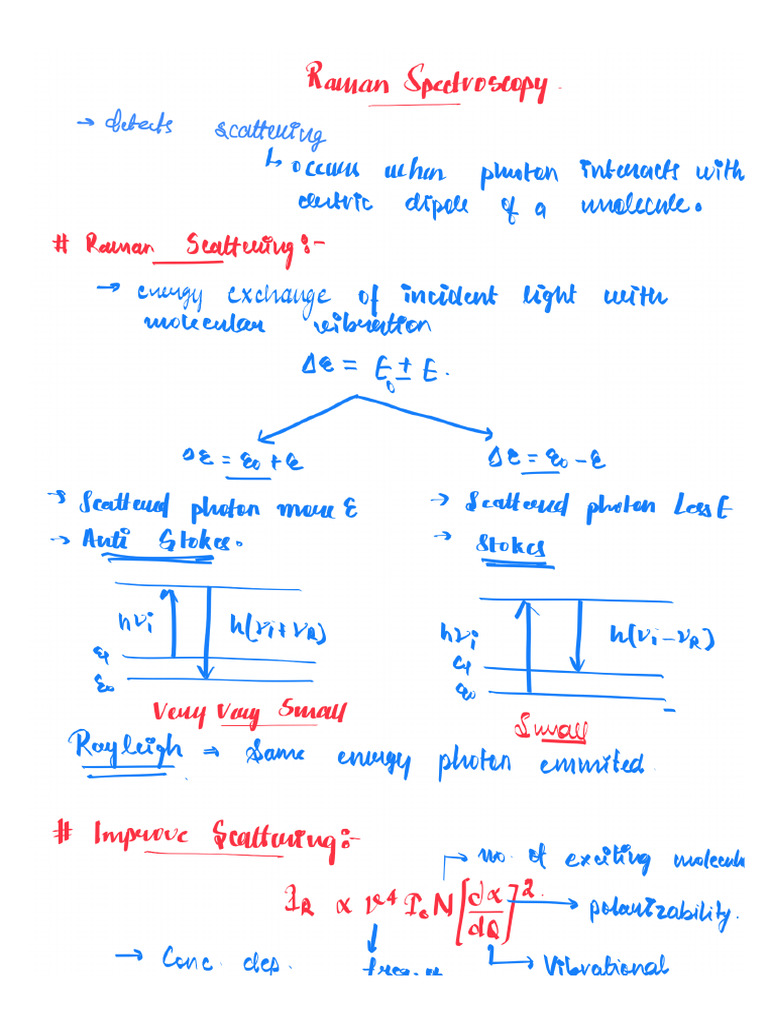 Raman Spectroscopy.
→ detects scattering
↳ occurs when photon interacts with
electric dipole of a molecule.
# Raman Scattering:-
→ energy exchange of incident light with
molecular vibration
Δε = E₀ ± E.
Δε = ε₀ + ε
Δε = ε₀ - ε
→ Scattered photon more E
→ Anti Stokes.
→ Scattered photon Less E
→ Stokes
hνi
h(νi + νR)
ε₁
ε₀
Very Very Small
hνi
h(νi - νR)
ε₁
ε₀
Small
Rayleigh → Same energy photon emmited.
# Improve Scattering:-
→ no. of exciting molecule
I_R ∝ ν⁴ I₀ N [dα/dQ]² → polarizability.
→ Conc. dep.
→ Vibrational